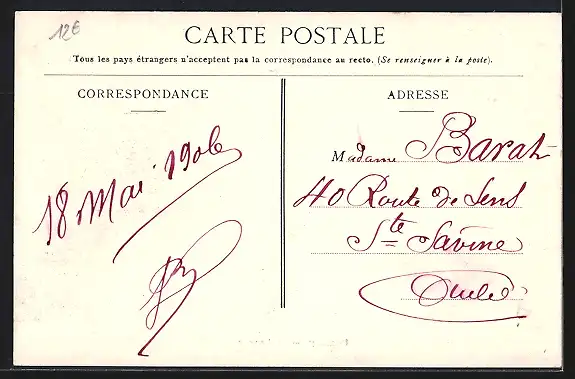 12€
CARTE POSTALE
Tous les pays étrangers n'acceptent pas la correspondance au recto. (Se renseigner à la poste).
CORRESPONDANCE
ADRESSE
18 Mai 1906
Madame Barat
40 Route de Sens
Ste Savine
Aube